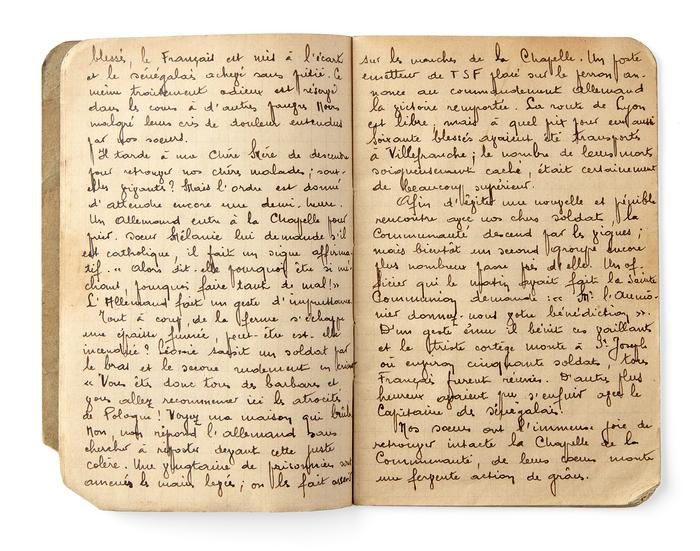 blessés, le Français est mis à l'écart
et le sénégalais achevé sans pitié. Ce
même traitement odieux est réservé
dans la cour à d'autres pauvres Noirs
malgré leurs cris de douleur entendus
par nos sœurs.
Il tarde à une Chère Mère de descendre
pour retrouver nos chers malades ; sont-
elles vivants ? Mais l'ordre est donné
d'attendre encore une demi-heure.
Un Allemand entre à la Chapelle pour
prier. Sœur Mélanie lui demande s'il
est catholique, il fait un signe affirma
tif. « Alors dit-elle pourquoi être si mé
chant, pourquoi faire tant de mal !»
L'Allemand fait un geste d'impuissance
Tout à coup, de la ferme s'échappe
une épaisse fumée, peut-être est-elle
incendiée ? Léonie saisit un soldat par
le bras et le secoue rudement en
« Vous êtes donc tous des barbares et
vous allez recommencer ici les atrocités
de Pologne ! Voyez ma maison qui brûle
Non, non répond l'allemand sans
chercher à riposter devant cette juste
colère. Une vingtaine de prisonniers sont
amenés les mains levées ; on les fait asseoir
sur les marches de la Chapelle. Un poste
émetteur de TSF placé sur le perron an-
nonce au commandement allemand
la victoire remportée. La route de Lyon
est libre, mais à quel prix pour eux aussi
soixante blessés avaient été transportés
à Villefranche ; le nombre de leurs morts
soigneusement caché, était certainement
de beaucoup supérieur.
Afin d'éviter une nouvelle et pénible
rencontre avec nos chers soldats, la
Communauté descend par les vignes ;
mais bientôt un second groupe encore
plus nombreux passe près d'elle. Un of-
ficier qui le matin avait fait la Sainte
Communion demande : « Mr l'Aumô-
nier donnez-nous votre bénédiction ».
D'un geste ému il bénit ces vaillants
et le triste cortège monte à St. Joseph
où environ cinquante soldats, tous
Français furent réunis. D'autres plus
heureux avaient pu s'enfuir avec le
Capitaine des sénégalais.
Nos sœurs ont l'immense joie de
retrouver intacte la Chapelle de la
Communauté, de leurs cœurs monte
une fervente action de grâces.